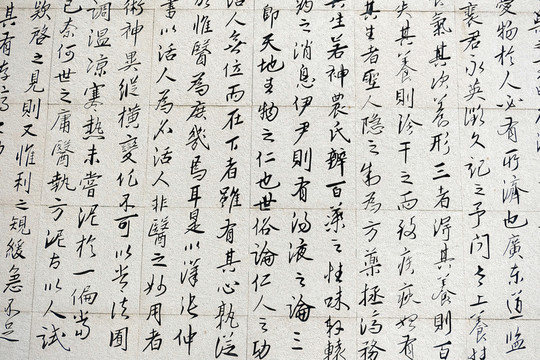 愛物於人必有所濟也廣东道监
襄君永英徵久記之予问之上養
氣其次養形三者得其養則百
失其養則診干之而致疾疢如有
其生者聖人隱之制為方藥拯濟務
生若神農氏辨百藥之性味軒轅
物之消息伊尹則有湯液之論三
即天地生物之仁也世俗論仁人之功
活人無位而在下者雖有其心孰從
於惟醫為庶幾焉耳是以漢張仲
書以活人為名活人非醫之妙用者
術神異縱橫變化不可以常法囿
調温凉寒熱未嘗泥於一偏當
已奈何世之庸醫執方泥古以人試
欵啓之見則又惟利之規緩急不足
其有